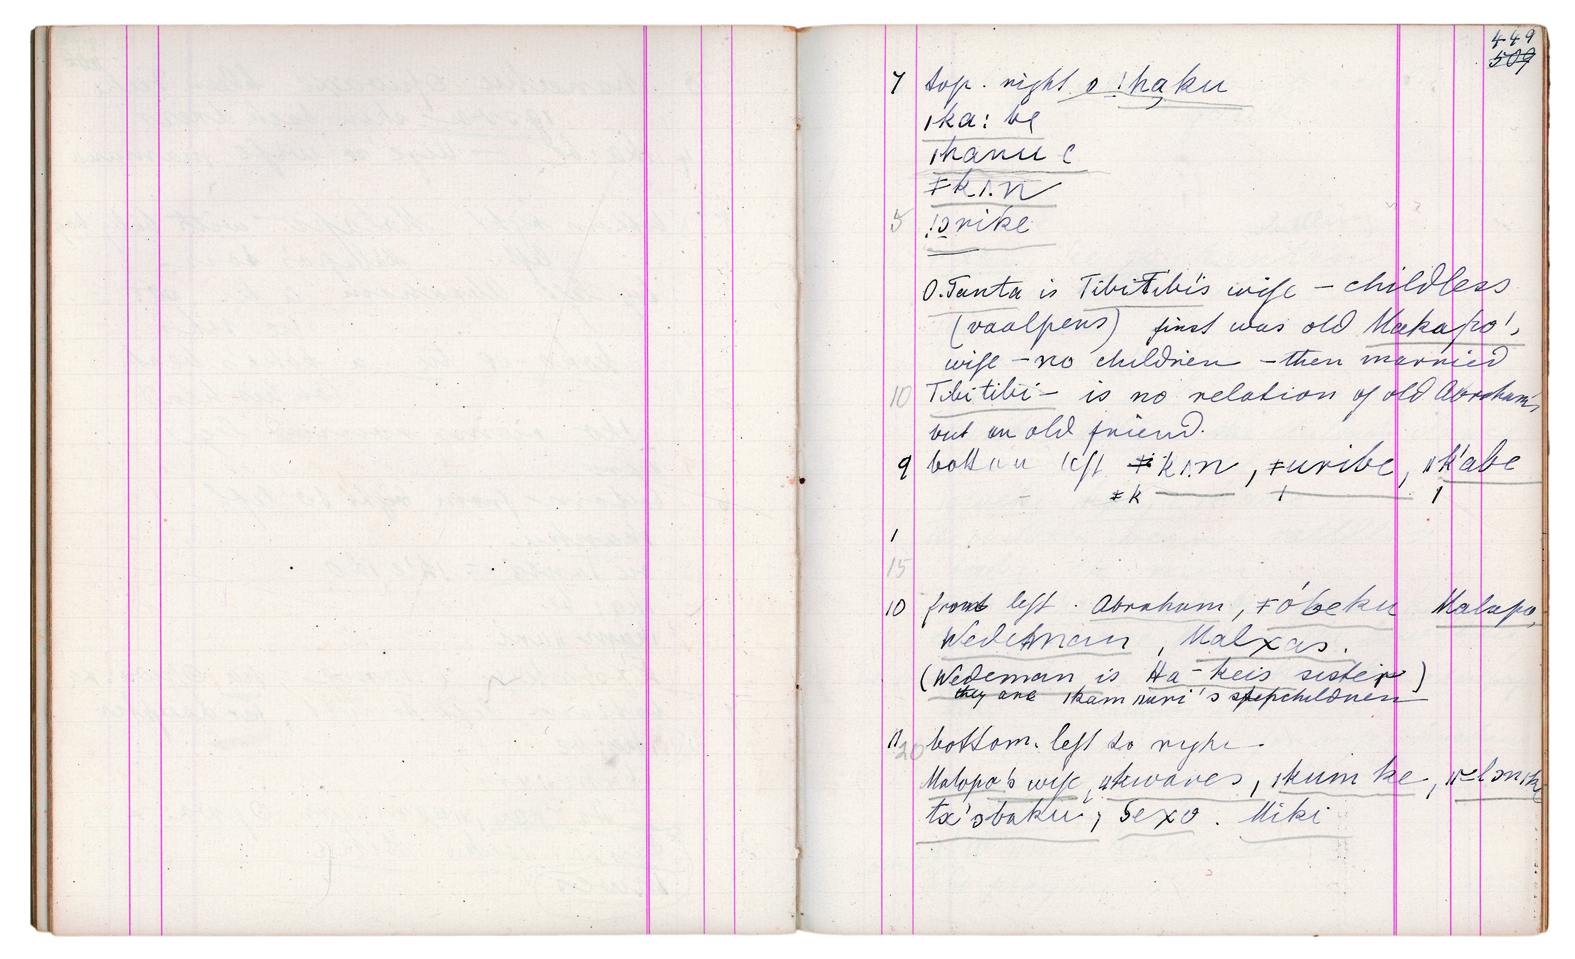 449
509
7 top. right o !haku
ǀka: be
ǀhanu e
ǂkı.n
5 !ɔrike
O.Tanta is TibiTibi's wife – childless
(vaalpens) first was old Makapo's
wife – no children – then married
10 Tibitibi – is no relation of old Abraham's
but an old friend.
9 bottom left ǂkı:n, ǂuribe, ǁk'abe
ǂk ǀ ǀ
1
15
10 front left. Abraham, ǂóbeku Malapo,
Wedeman, Malxas.
(Wedeman is Ha-keis sister)
they are ǀkam ǁuri's stepchildren
11 20 bottom. left to right –
Malopo's wife, ǁkwares, ǀkum ke,
tx'ɔbaku, Sexo. Miki